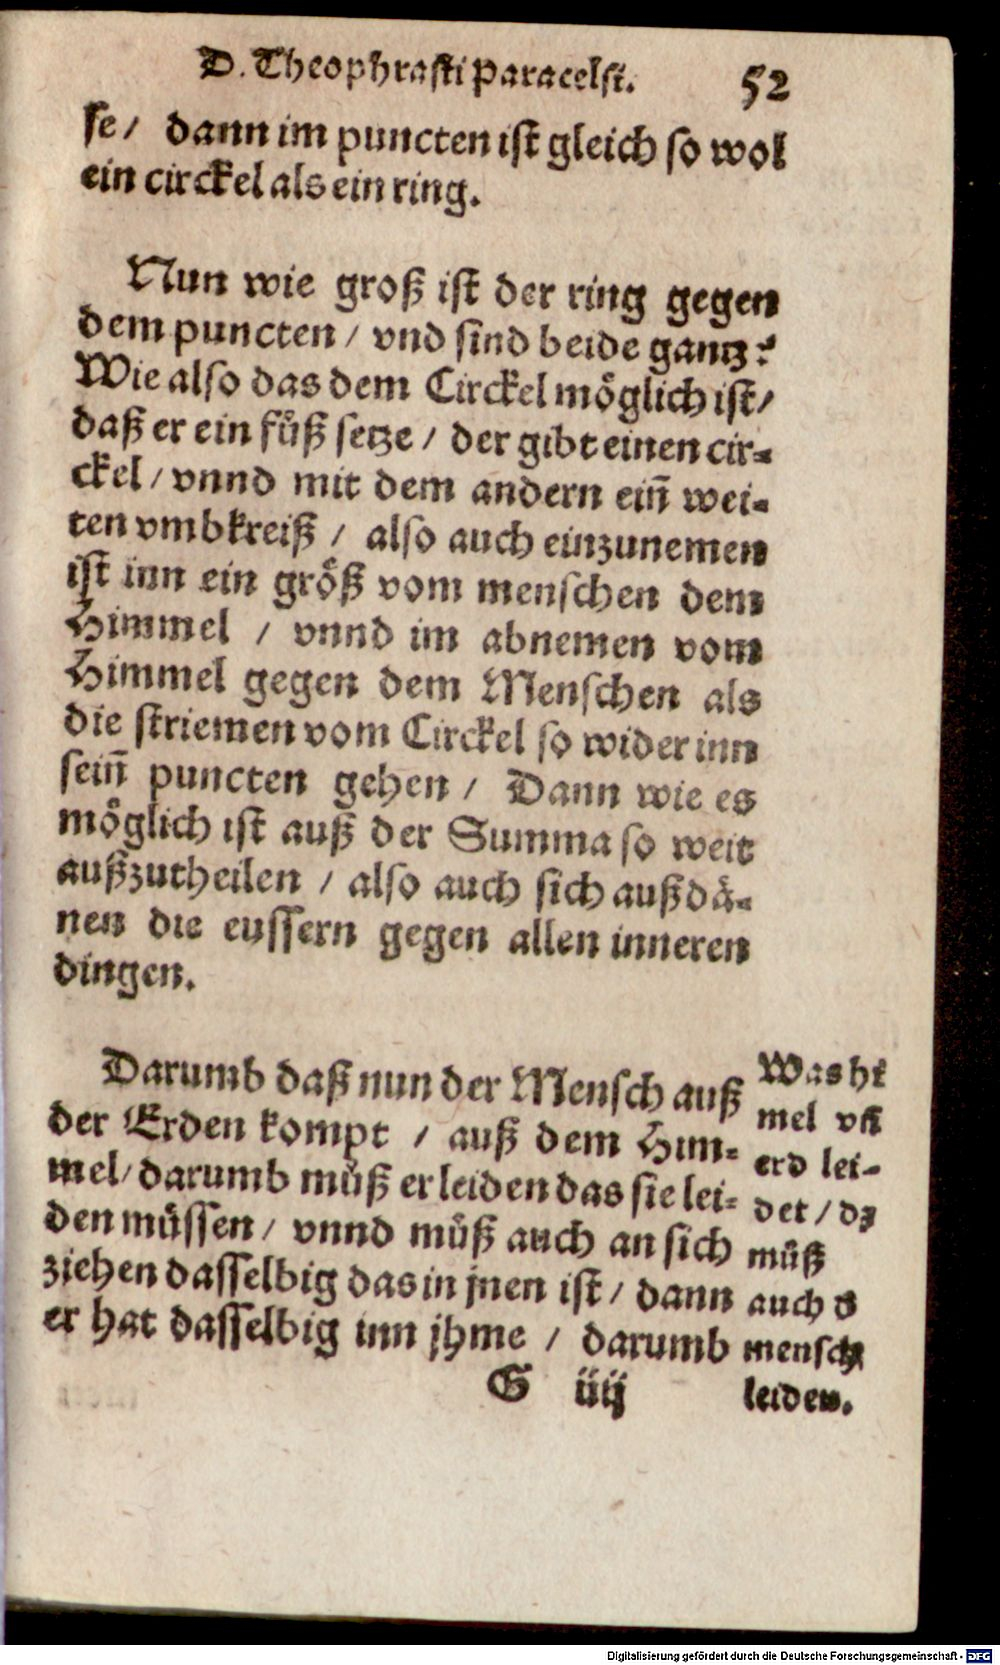 D. Theophrasti Paracelsi. 52
se/ dann im puncten ist gleich so wol
ein circkel als ein ring.
Nun wie groß ist der ring gegen
dem puncten / vnd sind beide gantz?
Wie also das dem Circkel möglich ist/
daß er ein fůß setze / der gibt einen cir-
ckel / vnnd mit dem andern ein̄ wei-
ten vmbkreiß / also auch einzunemen
ist inn ein größ vom menschen dem
Himmel / vnnd im abnemen vom
Himmel gegen dem Menschen als
die striemen vom Circkel so wider inn
sein̄ puncten gehen / Dann wie es
möglich ist auß der Summa so weit
außzutheilen / also auch sich außdä-
nen die eussern gegen allen inneren
dingen.
Darumb daß nun der Mensch auß
der Erden kompt / auß dem Him-
mel/ darumb můß er leiden das sie lei-
den müssen / vnnd můß auch an sich
ziehen dasselbig das in jnen ist / dann
er hat dasselbig inn jhme / darumb
G iiij
Was hi
mel vñ
erd lei-
det / dz
můß
auch d
mensch
leiden.
Digitalisierung gefördert durch die Deutsche Forschungsgemeinschaft - DFG